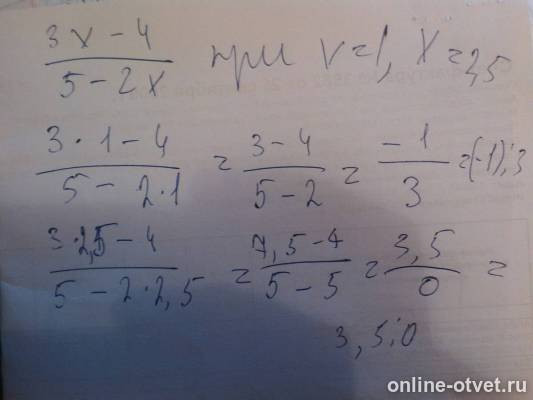 3x - 4 / 5 - 2x при x=1, x=2,5
3·1-4 / 5-2·1 = 3-4 / 5-2 = -1 / 3 =(-1):3
3·2,5-4 / 5-2·2,5 = 7,5-4 / 5-5 = 3,5 / 0 =
3,5:0
online-otvet.ru